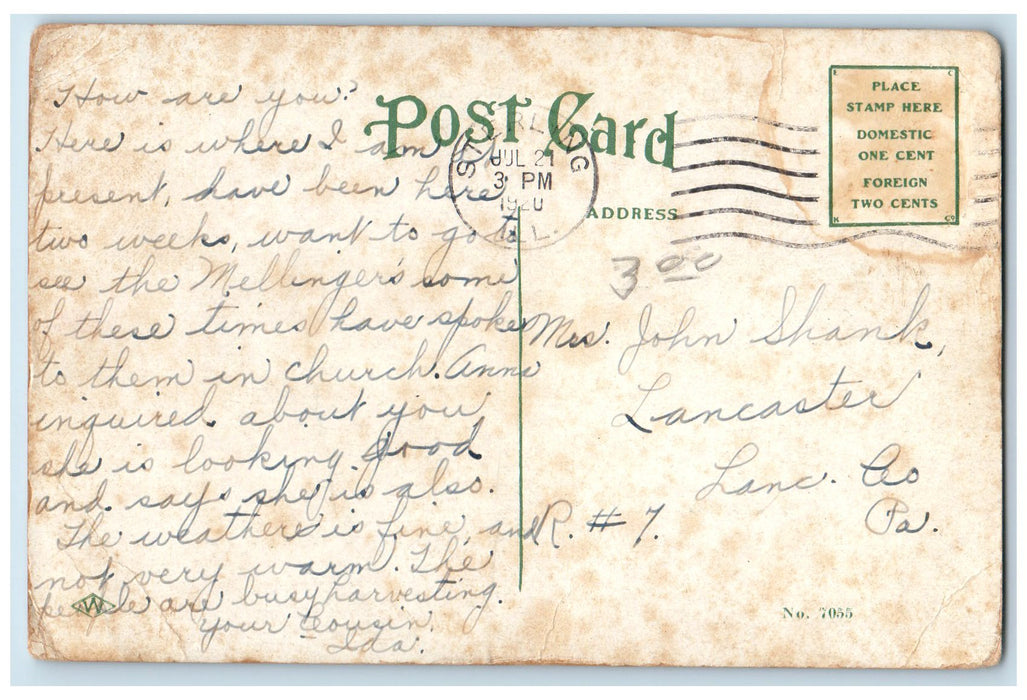 How are you?
Here is where I am at
present, have been here
two weeks, want to go to
see the Mellinger's some
of these times have spoke
to them in church. Anna
inquired about you
she is looking good
and says she is also.
The weather is fine, and
not very warm. The
people are busy harvesting.
your cousin.
Ida.
W
POST CARD
STERLING
JUL 21
3 PM
1920
ILL.
ADDRESS
PLACE
STAMP HERE
DOMESTIC
ONE CENT
FOREIGN
TWO CENTS
E C K Co
3 00
Mrs. John Shank,
Lancaster
Lanc. Co
R. # 7. Pa.
No. 7055